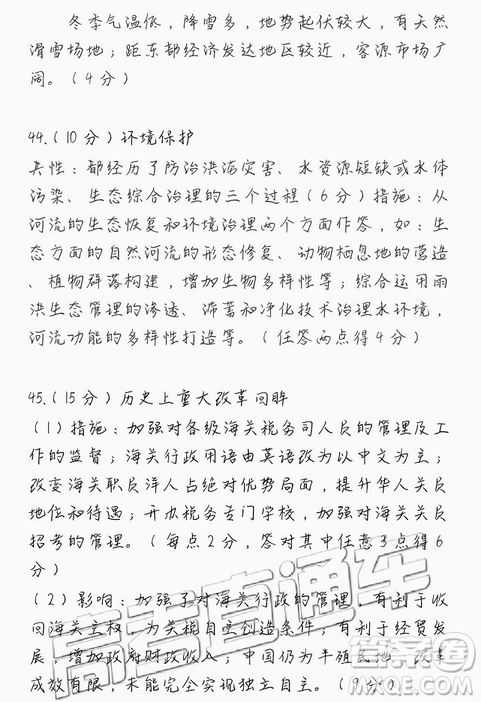 冬季气温低，降雪多，地势起伏较大，有天然
滑雪场地；距东部经济发达地区较近，客源市场广
阔。（4分）
44.（10分）环境保护
共性：都经历了防治洪涝灾害、水资源短缺或水体
污染、生态综合治理的三个过程（6分）措施：从
河流的生态恢复和环境治理两个方面作答，如：生
态方面的自然河流的形态修复、动物栖息地的营造
、植物群落构建，增加生物多样性等；综合运用雨
洪生态管理的渗透、滞蓄和净化技术治理水环境，
河流功能的多样性打造等。（任答两点得4分）
45.（15分）历史上重大改革回眸
（1）措施：加强对各级海关税务司人员的管理及工
作的监督；海关行政用语由英语改为以中文为主；
改变海关职员洋人占绝对优势局面，提升华人关员
地位和待遇；开办税务专门学校，加强对海关关员
招考的管理。（每点2分，答对其中任意3点得6
分）
（2）影响：加强了对海关行政的管理，有利于收
回海关主权，为关税自主创造条件；有利于经贸发
展，增加政府财政收入；中国仍为半殖民地，改革
成效有限，未能完全实现独立自主。（9分）
高考直通车
答案圈